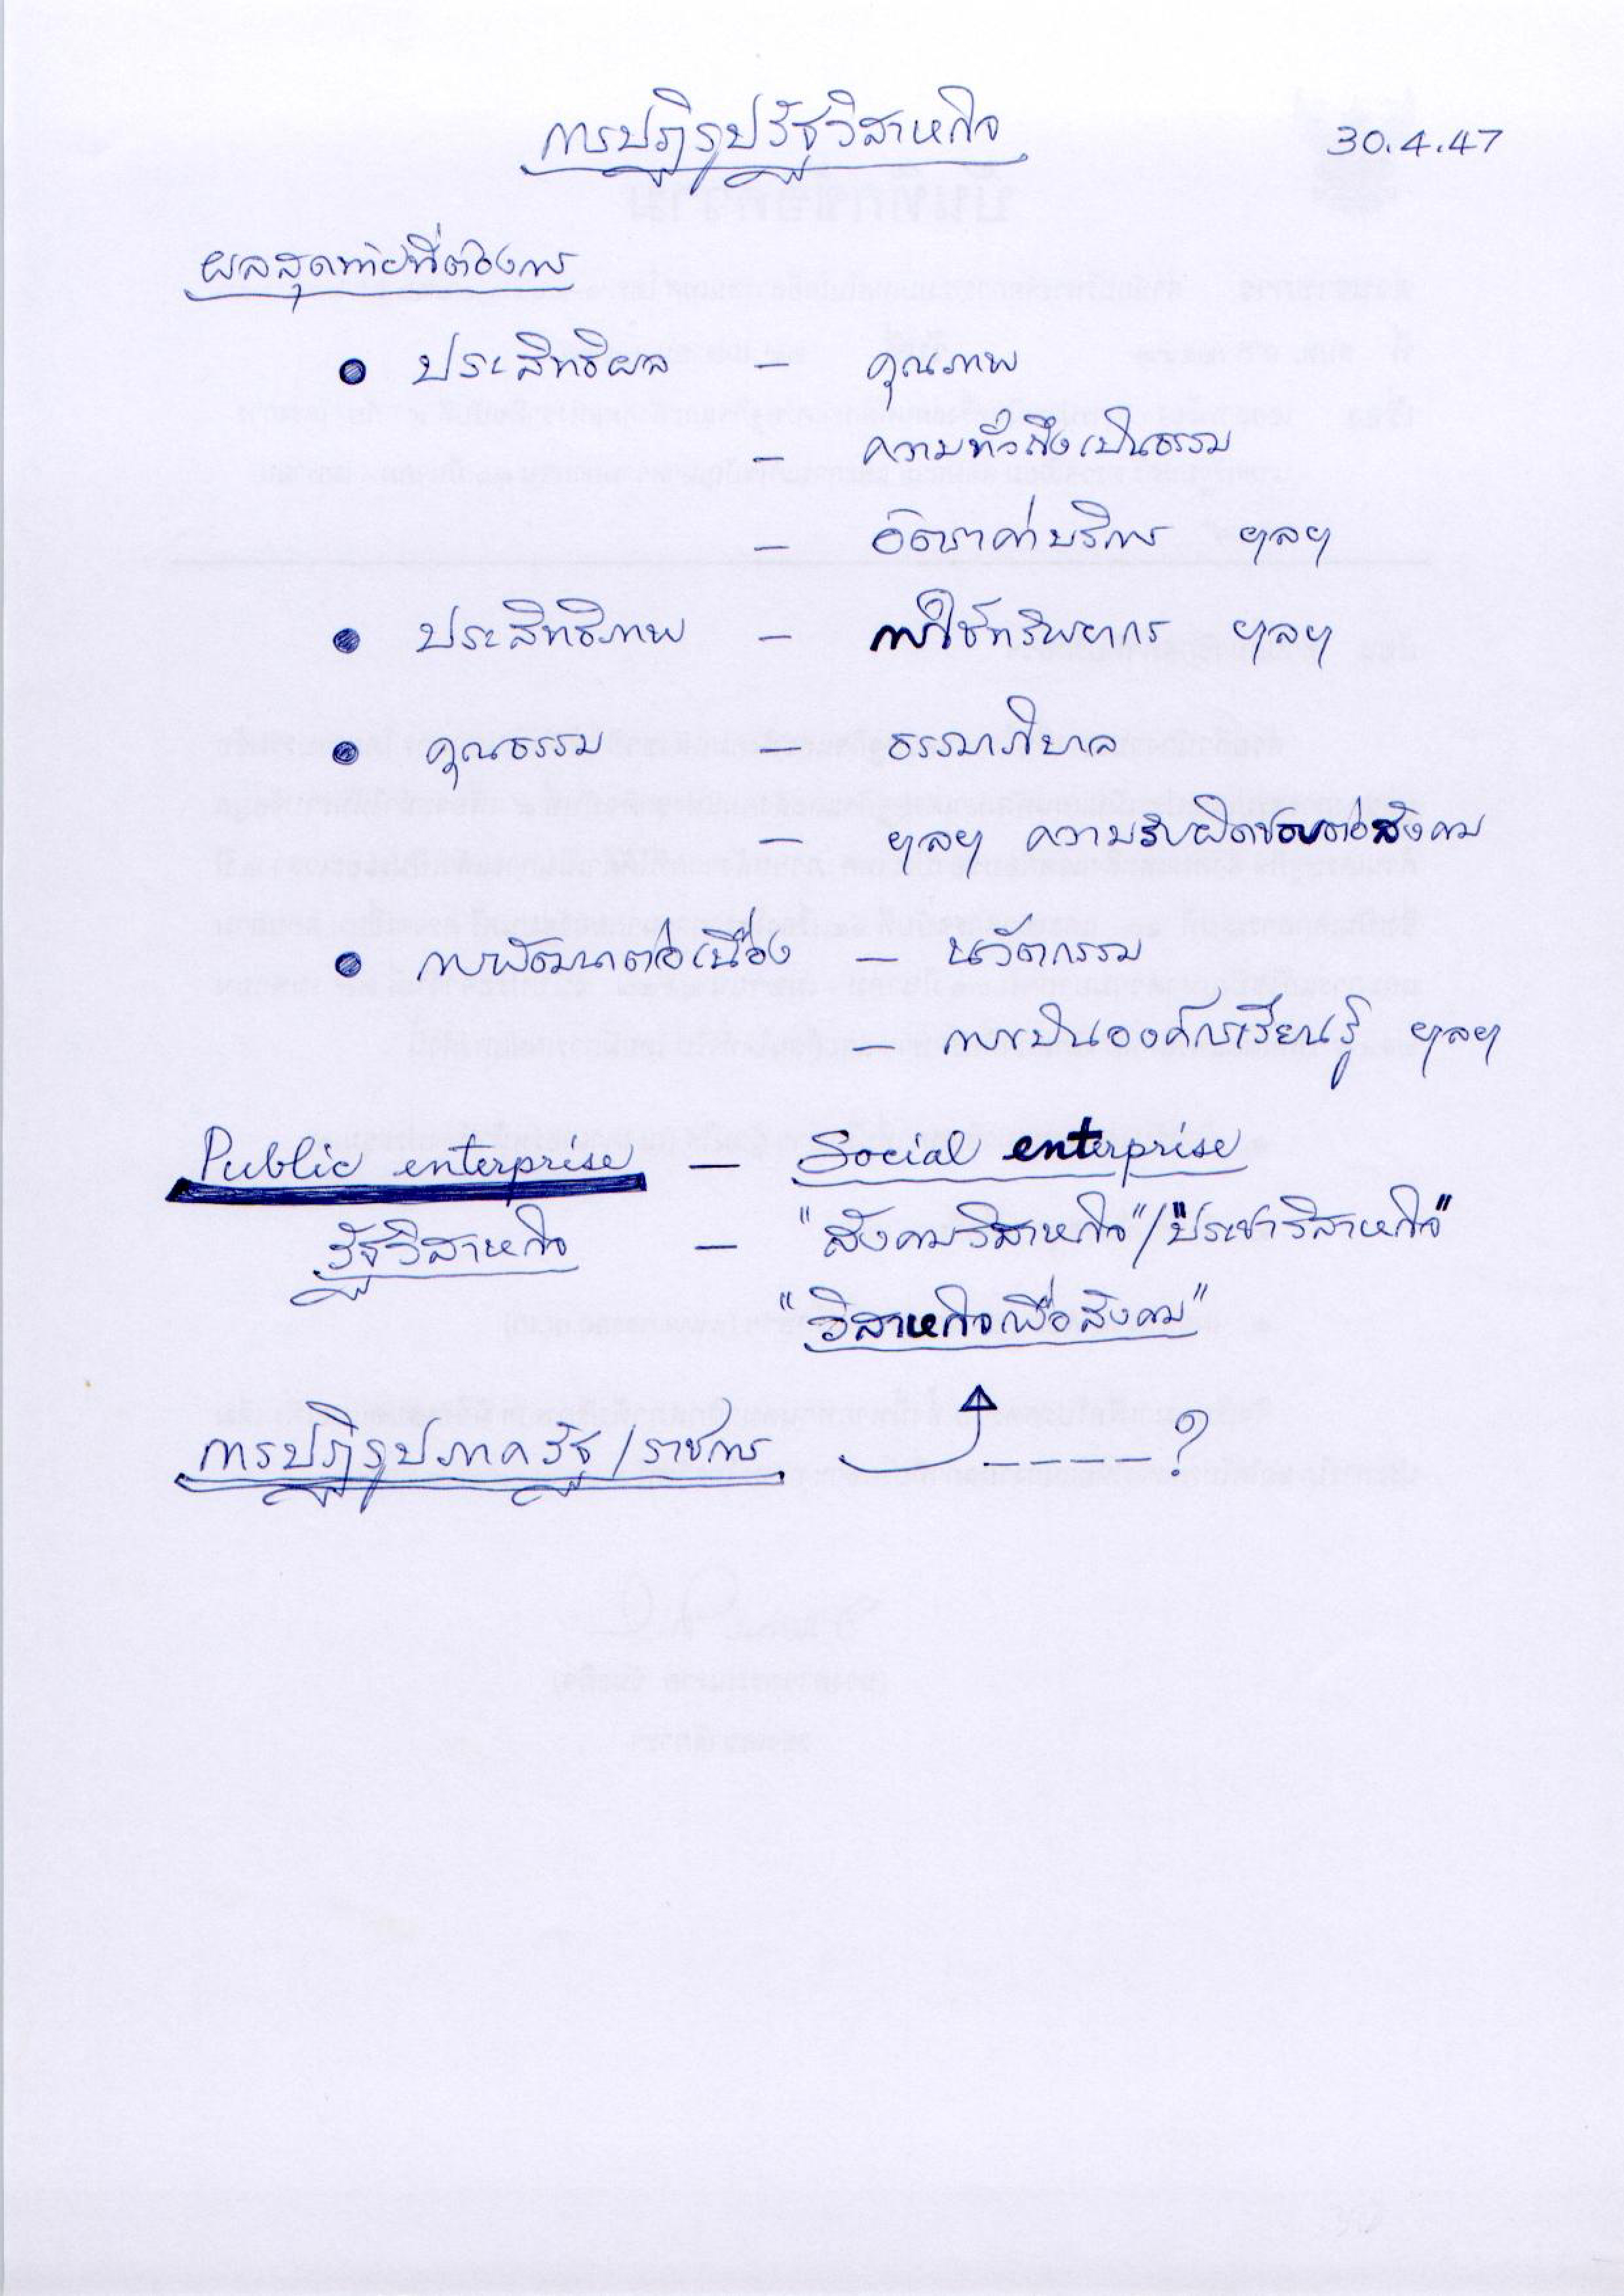 การปฏิรูปรัฐวิสาหกิจ 30.4.47
ผลสุดท้ายที่ต้องการ
● ประสิทธิผล – คุณภาพ
– ความทั่วถึงเป็นธรรม
– อัตราค่าบริการ ฯลฯ
● ประสิทธิภาพ – การใช้ทรัพยากร ฯลฯ
● คุณธรรม – ธรรมาภิบาล
– ฯลฯ ความรับผิดชอบต่อสังคม
● การพัฒนาต่อเนื่อง – นวัตกรรม
– การเป็นองค์กรเรียนรู้ ฯลฯ
Public enterprise – Social enterprise
รัฐวิสาหกิจ – "สังคมวิสาหกิจ"/"ประชาวิสาหกิจ"
"วิสาหกิจเพื่อสังคม"
การปฏิรูปภาครัฐ/ราชการ ----?